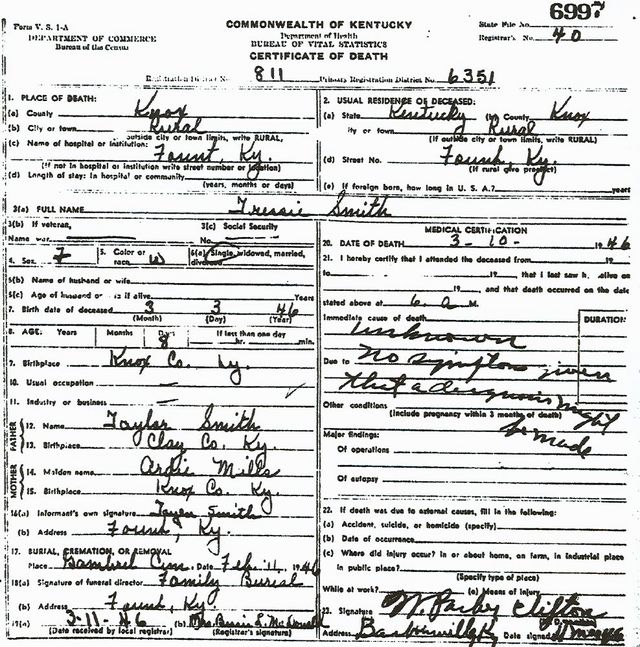 Form V. S. 1-A
DEPARTMENT OF COMMERCE
Bureau of the Census
COMMONWEALTH OF KENTUCKY
Department of Health
BUREAU OF VITAL STATISTICS
CERTIFICATE OF DEATH
6997
State File No.
Registrar's No. 40
Registration District No. 811 Primary Registration District No. 6351
1. PLACE OF DEATH:
(a) County Knox
(b) City or town Rural
(If outside city or town limits, write RURAL)
(c) Name of hospital or institution: Fount, Ky.
(If not in hospital or institution write street number or location)
(d) Length of stay: In hospital or community
(years, months or days)
2. USUAL RESIDENCE OF DECEASED:
(a) State Kentucky (b) County Knox
ity or town Rural
(If outside city or town limits, write RURAL)
(d) Street No. Fount, Ky.
(If rural give precinct)
(e) If foreign born, how long in U. S. A.? years
3(a) FULL NAME Tressie Smith
3(b) If veteran,
Name war
3(c) Social Security
No.
4. Sex 7
5. Color or race W
6(a) Single, widowed, married, divorced
6(b) Name of husband or wife
6(c) Age of husband or if alive Years
7. Birth date of deceased 3 3 46
(Month) (Day) (Year)
8. AGE: Years Months Days If less than one day
8 hr. min.
9. Birthplace Knox Co. Ky.
10. Usual occupation
11. Industry or business
FATHER
12. Name Taylor Smith
13. Birthplace Clay Co. Ky
MOTHER
14. Maiden name Argie Mills
15. Birthplace Knox Co. Ky
16(a) Informant's own signature Smith
(b) Address Fount, Ky.
17. BURIAL, CREMATION, OR REMOVAL
Place Cem. Date Feb. 11, 1946
18(a) Signature of funeral director Family Burial
(b) Address Fount, Ky
19(a) 3-11-46 (b) Mrs. L. McDonald
(Date received by local registrar) (Registrar's signature)
MEDICAL CERTIFICATION
20. DATE OF DEATH 3-10- 1946
21. I hereby certify that I attended the deceased from 19
to 19 , that I last saw h alive on
19 , and that death occurred on the date
stated above at 6. a M.
Immediate cause of death DURATION
Unknown
Due to no symptoms given
that a diagnosis might
be made
Other conditions
(Include pregnancy within 3 months of death)
Major findings:
Of operations
Of autopsy
22. If death was due to external causes, fill in the following:
(a) Accident, suicide, or homicide (specify)
(b) Date of occurrence
(c) Where did injury occur? In or about home, on farm, in industrial place
in public place?
(Specify type of place)
While at work? (e) Means of injury
23. Signature W. Parley Clifton
Address Barbourville Ky Date signed